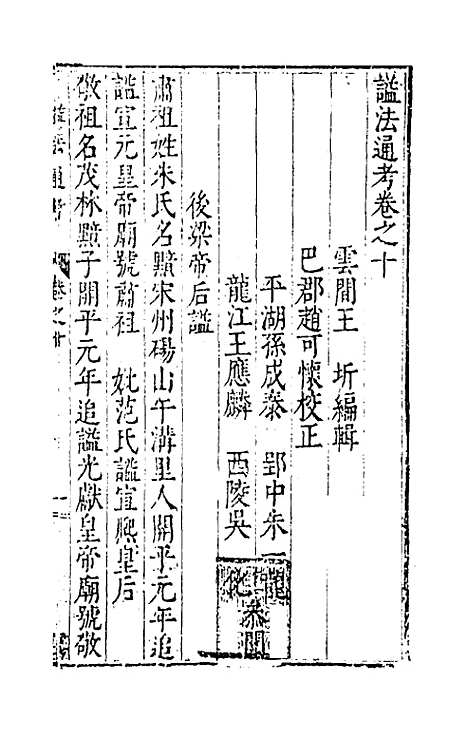 謚法通考卷之十
雲間王　圻編輯
巴郡趙可懷校正
平湖孫成泰　郢中朱一
龍江王應麟　西陵吳
後梁帝后謚
肅祖姓朱氏名黯宋州碭山午溝里人開平元年追
謚宣元皇帝廟號肅祖　妣范氏謚宣熙皇后
敬祖名茂林黯子開平元年追謚光獻皇帝廟號敬
謚法通考　卷之十　一